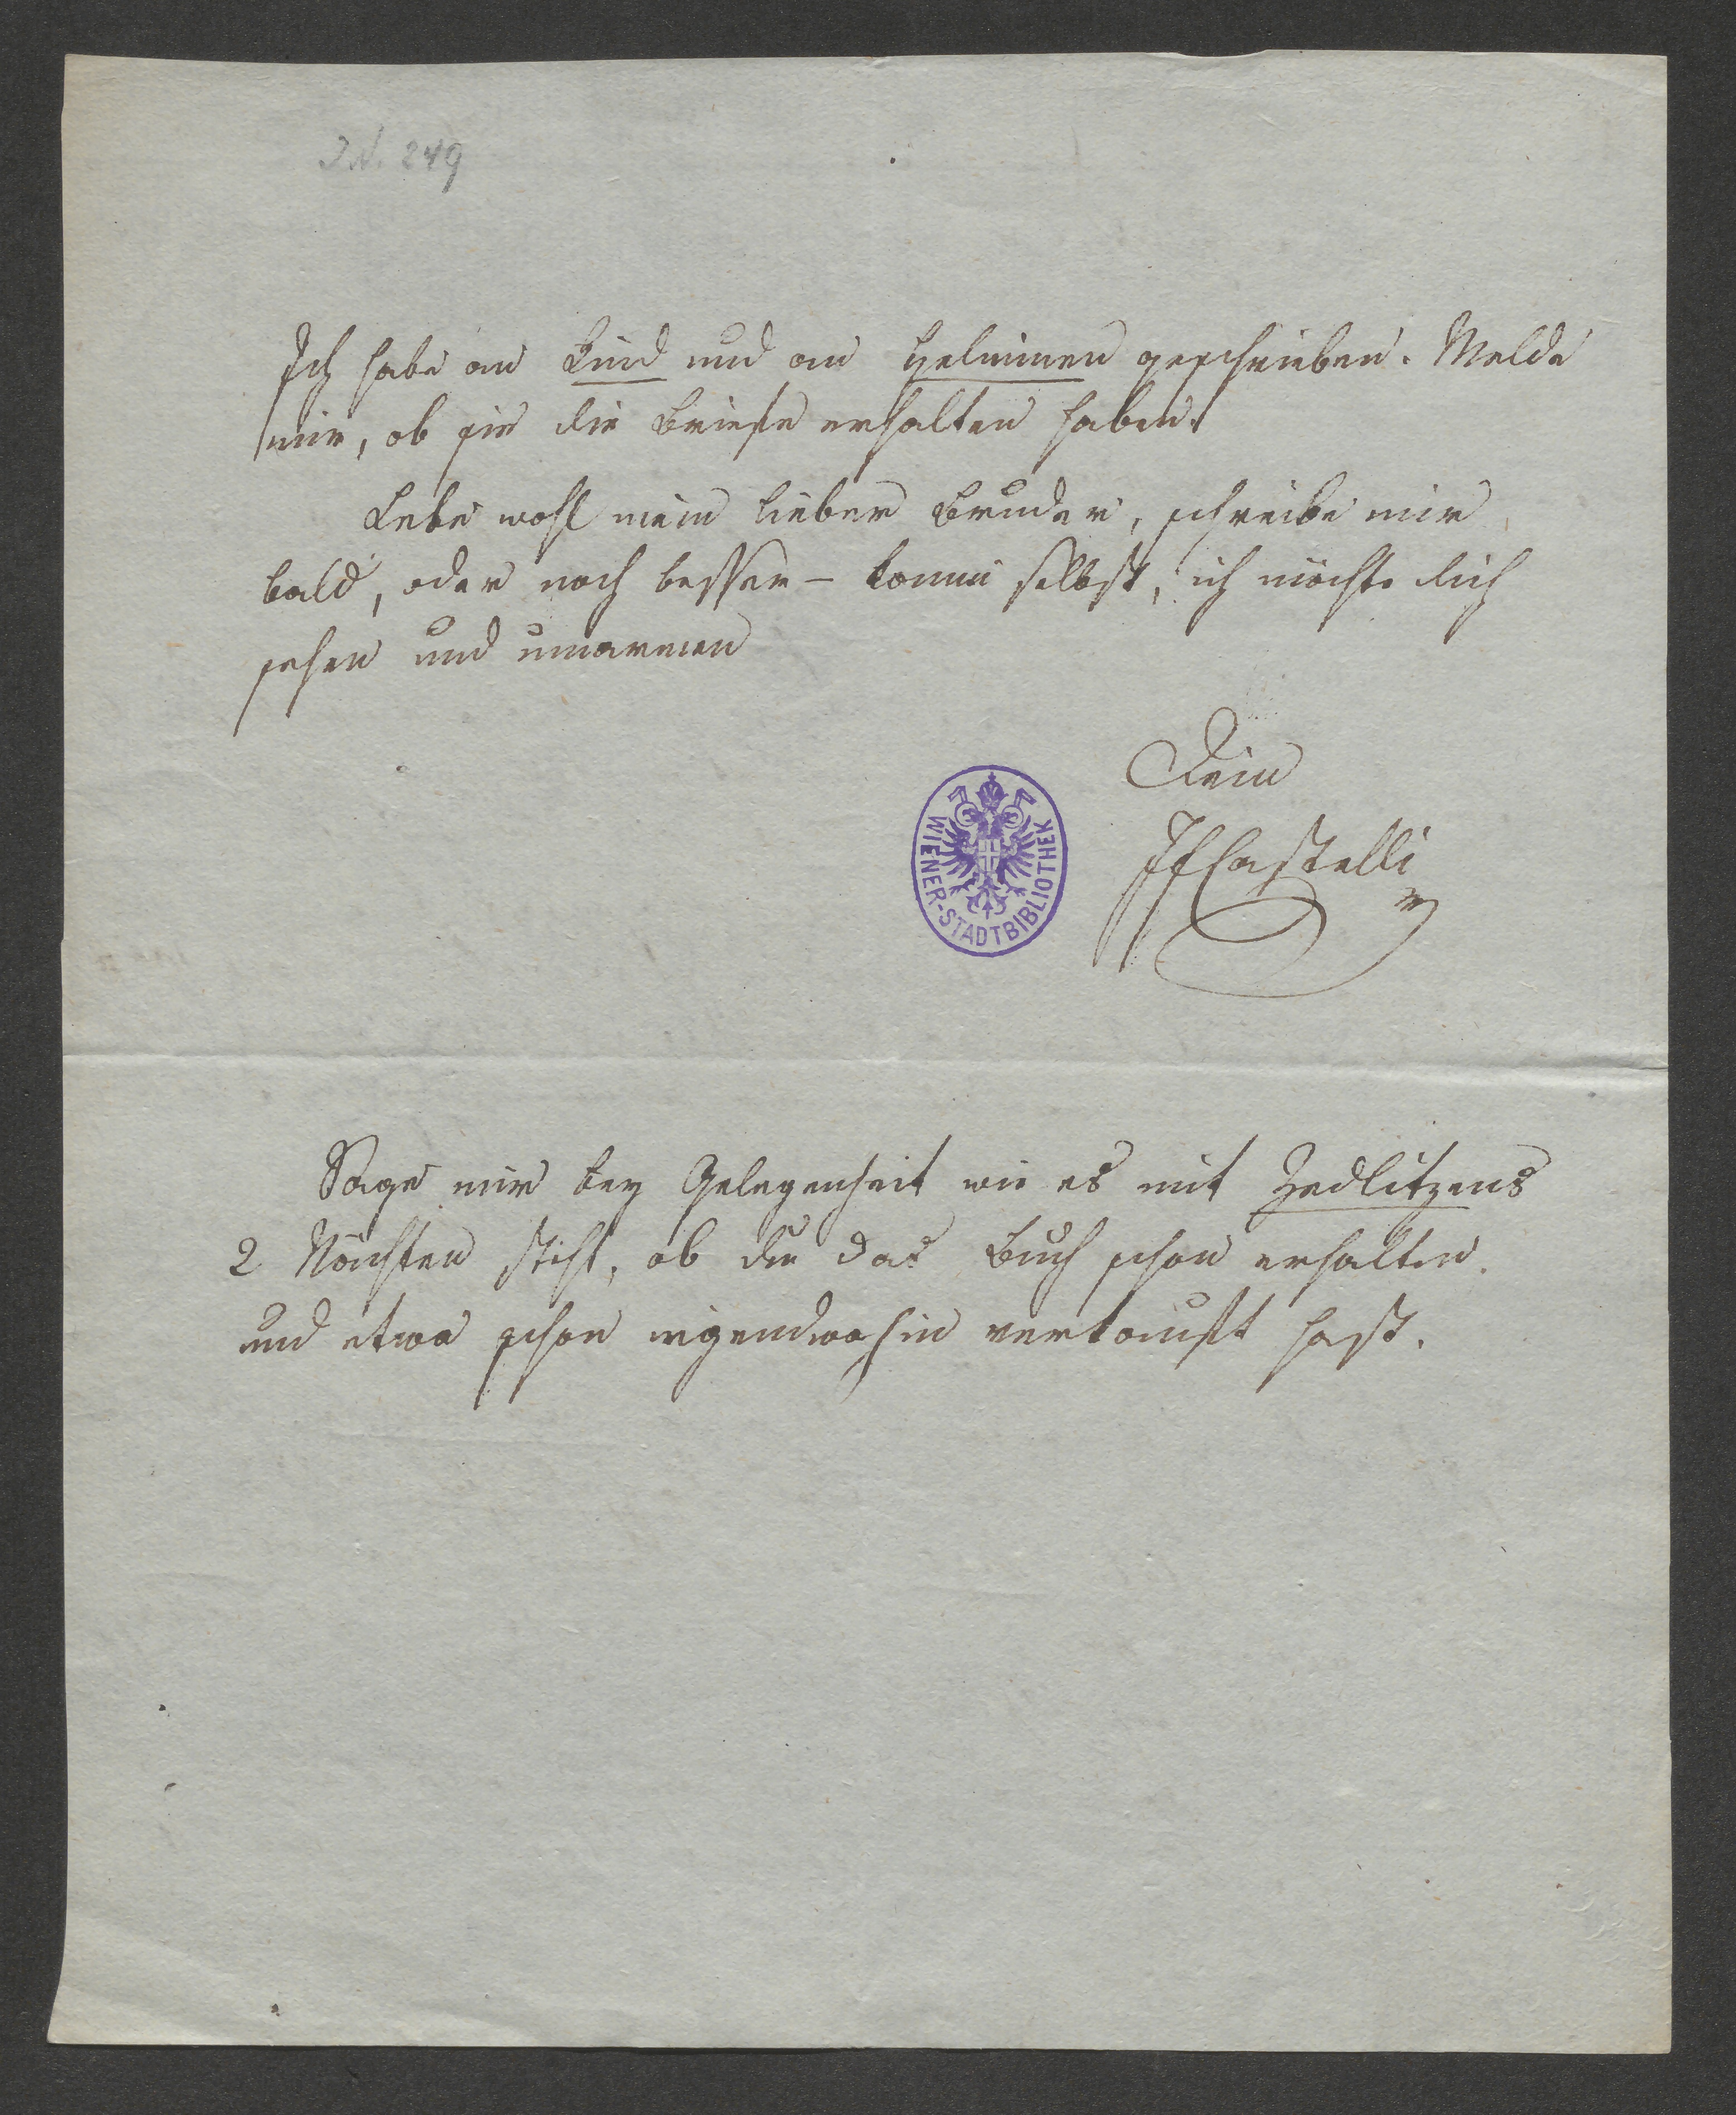 I.N. 249
Ich habe an Kind und an Helminen geschrieben. Melde
mir, ob sie die Briefe erhalten haben.
Lebe wohl mein lieber Bruder, schreibe mir
bald, oder noch besser – komm selbst, ich möchte dich
sehen und umarmen
Dein
IFCastelli
WIENER-STADTBIBLIOTHEK
Sage mir bey Gelegenheit wie es mit Zedlitzens
2 Nächten steht, ob du das Buch schon erhalten
und etwa schon irgendwohin verkauft hast.